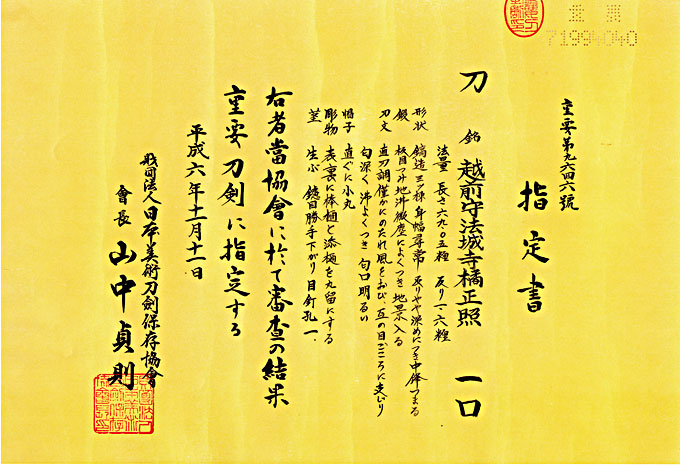 重要第九六四六號
指定書
刀 銘 越前守法城寺橘正照 一口
法量 長さ六九・五糎 反り一・六糎
形状 鎬造 三ツ棟 身幅尋常 反りやや深めにつき 中鋒つまる
鍛 板目つみ 地沸微塵によくつき 地景入る
刃文 直刃調 僅かにのたれ風をおび、互の目ごころに足入り
匂深く 沸よくつき 匂口明るい
帽子 直ぐに小丸
彫物 表裏に棒樋と添樋を丸留にする
茎 生ぶ 鑢目勝手下がり 目釘孔一
右者當協會に於て審査の結果
重要刀剣に指定する
平成六年十一月十一日
財団法人日本美術刀劍保存協會
會長 山中貞則
重 刀
71994040